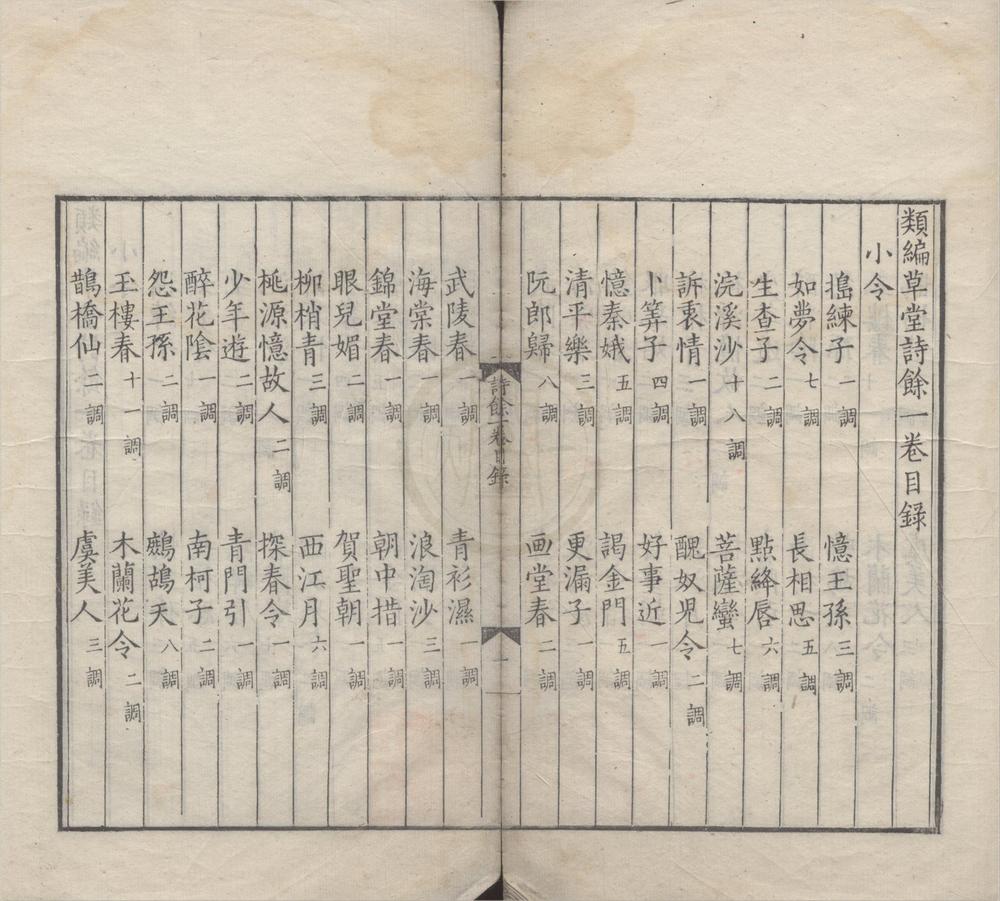 類編草堂詩餘一卷目録
小令
搗練子一調 憶王孫三調
如夢令七調 長相思五調
生查子二調 點絳唇六調
浣溪沙十八調 菩薩蠻七調
訴衷情一調 醜奴児令二調
卜筭子四調 好事近一調
憶秦娥五調 謁金門五調
清平樂三調 更漏子一調
阮郎歸八調 画堂春二調
詩餘一卷目錄 一
武陵春一調 青衫濕一調
海棠春一調 浪淘沙三調
錦堂春一調 朝中措一調
眼兒媚二調 賀聖朝一調
柳梢青三調 西江月六調
桃源憶故人二調 探春令一調
少年遊二調 青門引一調
醉花陰一調 南柯子二調
怨王孫二調 鷓鴣天八調
玉樓春十一調 木蘭花令二調
鵲橋仙二調 虞美人三調